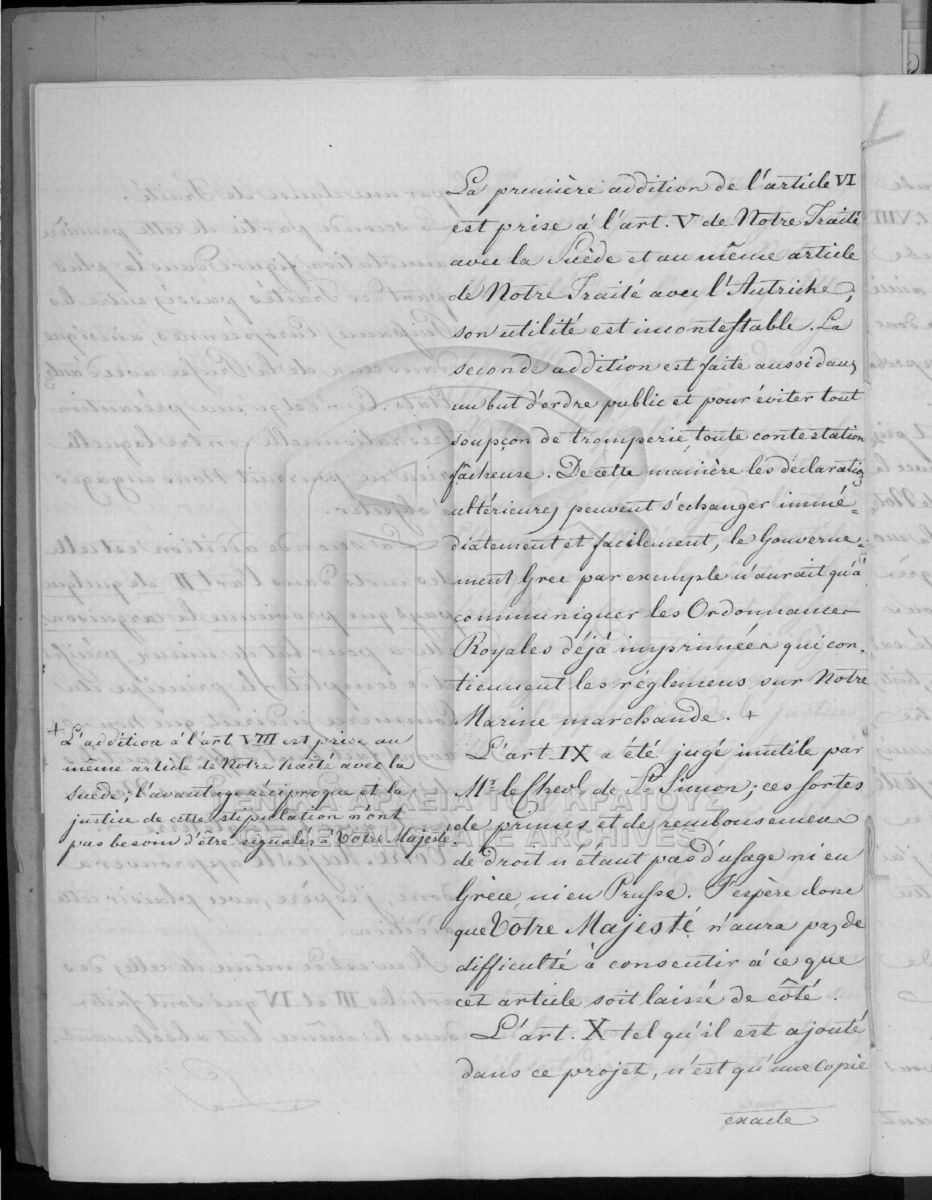 La première addition de l'article VI
est prise à l'art. V de Notre Traité
avec la Suède et au même article
de Notre Traité avec l'Autriche,
son utilité est incontestable. La
seconde addition est faite aussi dans
un but d'ordre public et pour éviter tout
soupçon de tromperie, toute contestation
fâcheuse. De cette manière les déclarations
ultérieures peuvent s'échanger immé=
diatement et facilement, le Gouverne=
ment Grec par exemple n'aurait qu'à
communiquer les Ordonnances
Royales déjà imprimées qui con=
tiennent les réglemens sur Notre
Marine marchande. +
+ L'addition à l'art VIII est prise au
même article de Notre Traité avec la
Suède; l'avantage réciproque et la
justice de cette stipulation n'ont
pas besoin d'être signalés à Votre Majesté.
L'art IX a été jugé inutile par
Mr. le Chevr. de St. Simon; ces sortes
de primes et de remboursemens
de droit n'étant pas d'usage ni en
Grèce, ni en Prusse. J'espère donc
que Votre Majesté n'aura pas de
difficulté à consentir à ce que
cet article soit laissé de côté.
L'art. X tel qu'il est ajouté
dans ce projet, n'est qu'une copie
exacte
ΓΕΝΙΚΑ ΑΡΧΕΙΑ ΤΟΥ ΚΡΑΤΟΥΣ
GENERAL STATE ARCHIVES